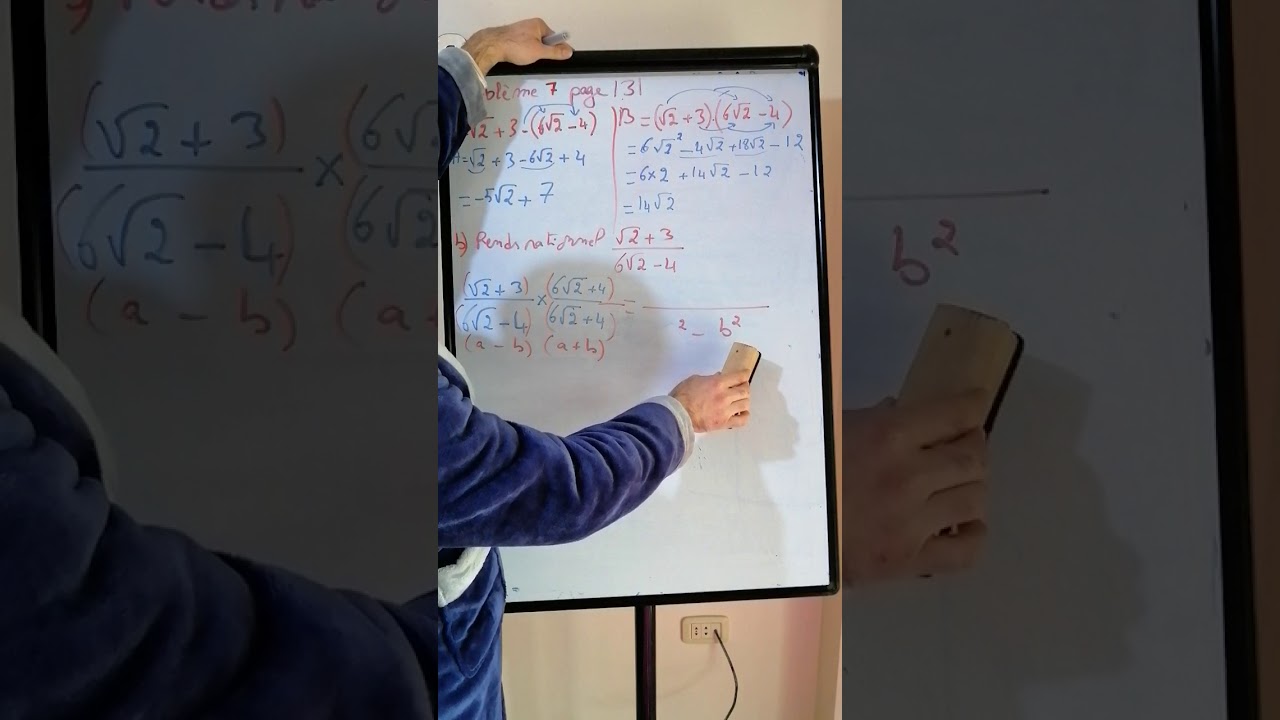 page 131
√2 + 3 - (6√2 - 4)
= √2 + 3 - 6√2 + 4
= -5√2 + 7
B = (√2 + 3).(6√2 - 4)
= 6√2² - 4√2 + 18√2 - 12
= 6×2 + 14√2 - 12
= 14√2
b) Rends rationnel (√2 + 3)/(6√2 - 4)
(√2 + 3)/(6√2 - 4) × (6√2 + 4)/(6√2 + 4) =
(a - b) (a + b)
² - b²